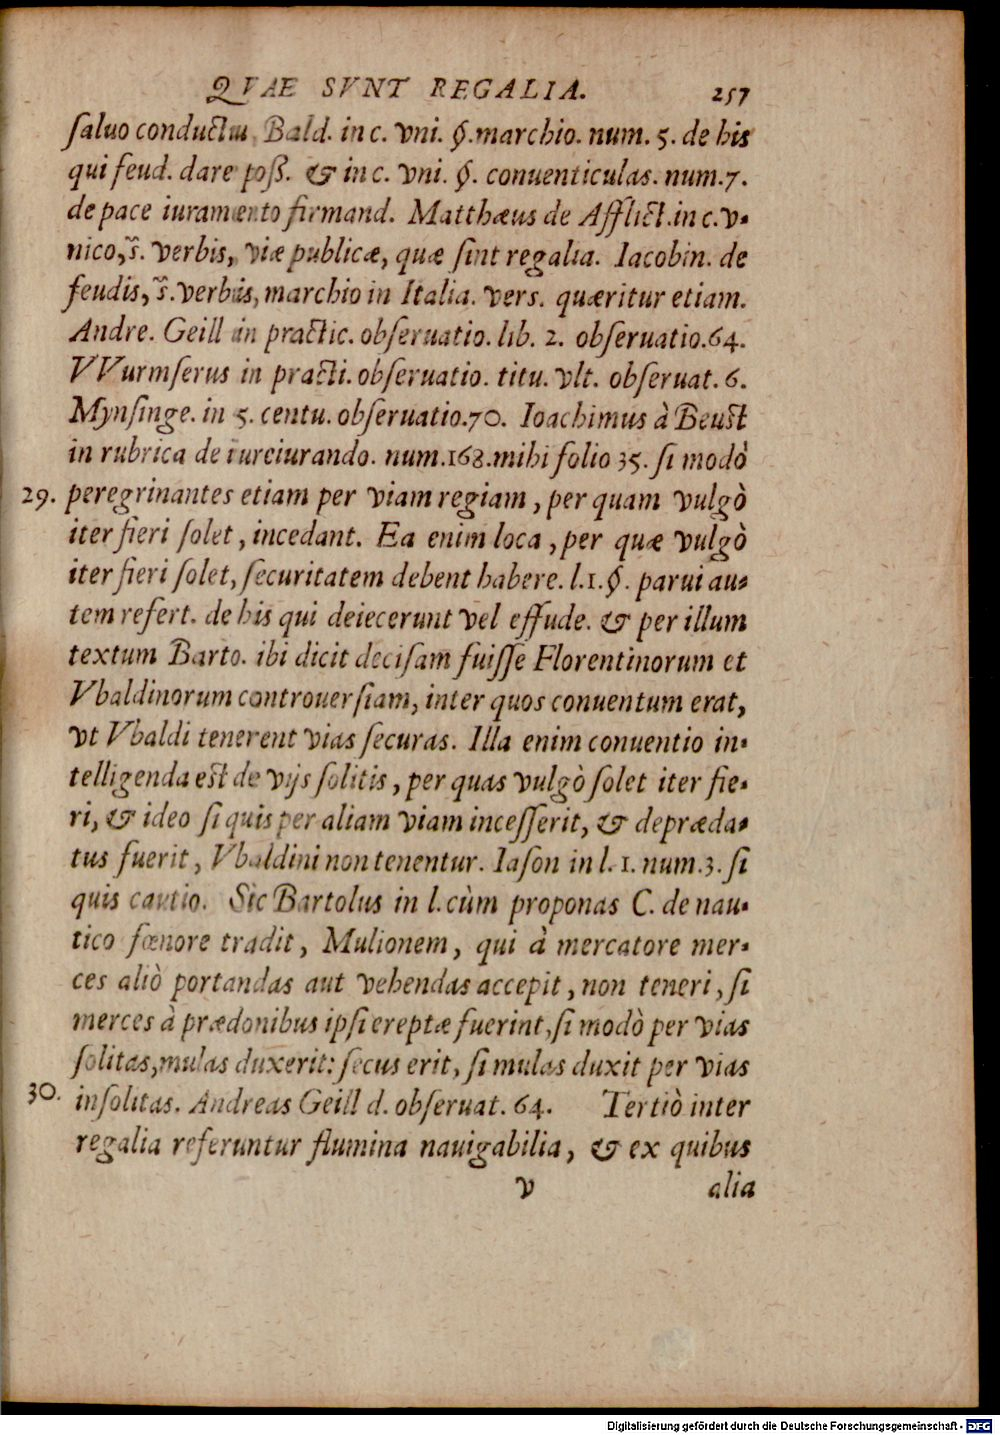 QVAE SVNT REGALIA. 257
ſaluo conductu, Bald. in c. vni. §. marchio. num. 5. de his
qui feud. dare poß. & in c. vni. §. conuenticulas. num. 7.
de pace iuramento firmand. Matthæus de Afflict. in c. v-
nico, §. verbis, viæ publicæ, quæ ſint regalia. Iacobin. de
feudis, §. verbis, marchio in Italia. vers. quæritur etiam.
Andre. Geill in practic. obſeruatio. lib. 2. obſeruatio. 64.
VVurmſerus in practi. obſeruatio. titu. vlt. obſeruat. 6.
Mynſinge. in 5. centu. obſeruatio. 70. Ioachimus à Beust
in rubrica de iureiurando. num. 168. mihi folio 35. ſi modò
29. peregrinantes etiam per viam regiam, per quam vulgò
iter fieri ſolet, incedant. Ea enim loca, per quæ vulgò
iter fieri ſolet, ſecuritatem debent habere. l. 1. §. parui au-
tem refert. de his qui deiecerunt vel effude. & per illum
textum Barto. ibi dicit deciſam fuiſſe Florentinorum et
Vbaldinorum controuerſiam, inter quos conuentum erat,
vt Vbaldi tenerent vias ſecuras. Illa enim conuentio in-
telligenda est de vijs ſolitis, per quas vulgò ſolet iter fie-
ri, & ideo ſi quis per aliam viam inceſſerit, & depræda-
tus fuerit, Vbaldini non tenentur. Iaſon in l. 1. num. 3. ſi
quis cautio. Sic Bartolus in l. cùm proponas C. de nau-
tico fœnore tradit, Mulionem, qui à mercatore mer-
ces aliò portandas aut vehendas accepit, non teneri, ſi
merces à prædonibus ipſi ereptæ fuerint, ſi modò per vias
ſolitas, mulas duxerit: ſecus erit, ſi mulas duxit per vias
30. inſolitas. Andreas Geill d. obſeruat. 64. Tertiò inter
regalia referuntur flumina nauigabilia, & ex quibus
v alia
Digitalisierung gefördert durch die Deutsche Forschungsgemeinschaft - DFG